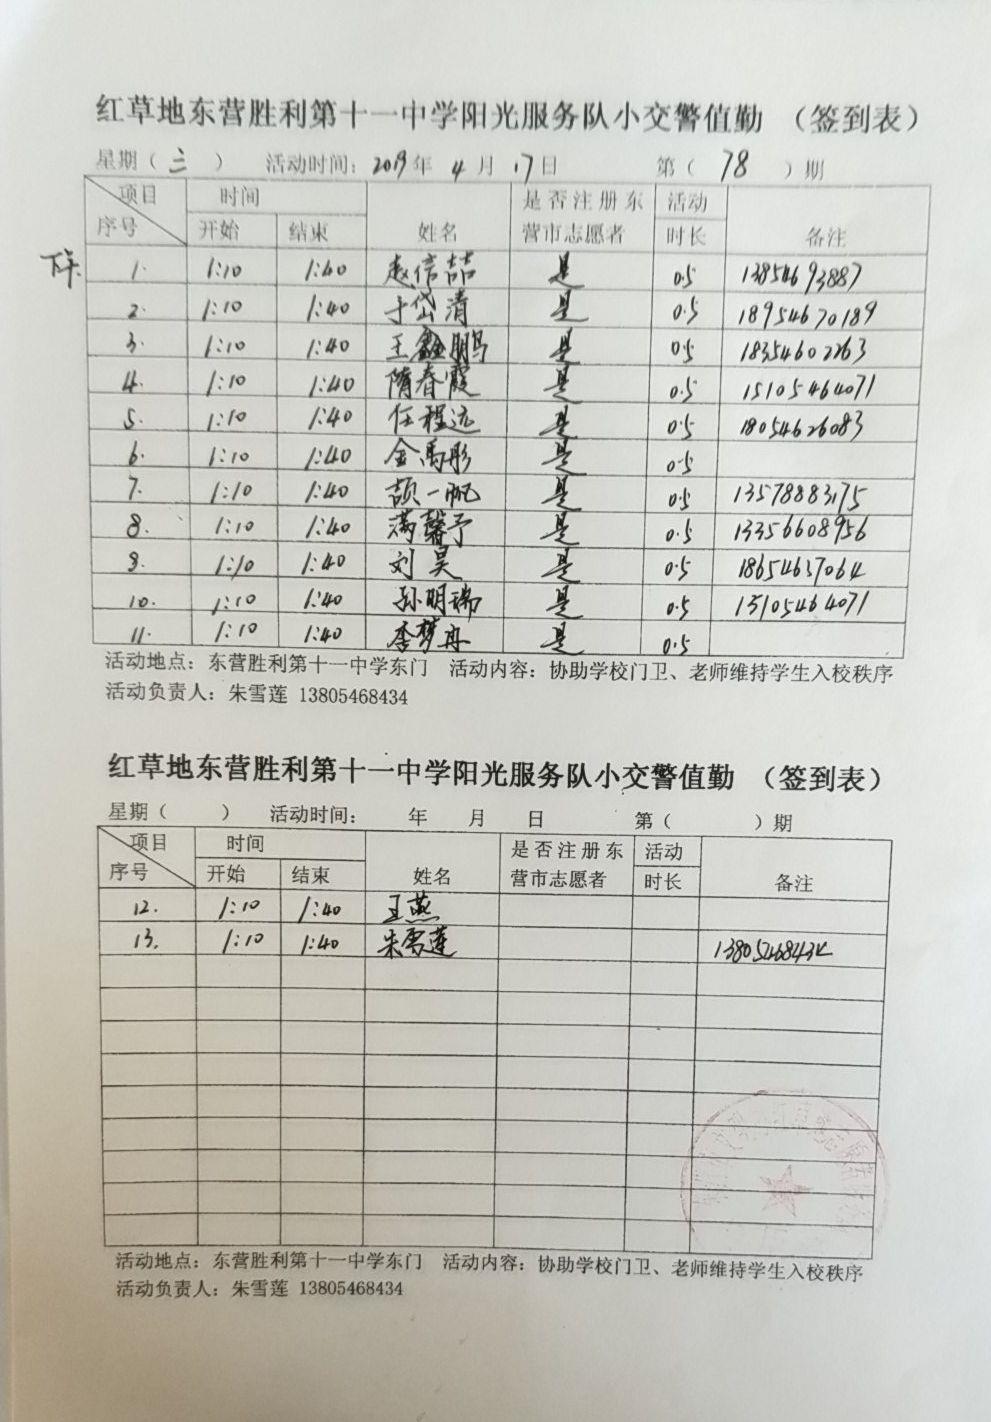 红草地东营胜利第十一中学阳光服务队小交警值勤 （签到表）
星期（三 ） 活动时间：2019年 4月 17日 第（ 78 ）期
项目 时间 是否注册东 活动
序号 开始 结束 姓名 营市志愿者 时长 备注
下午
1. 1:10 1:40 赵信喆 是 0.5 13854693887
2. 1:10 1:40 于岱清 是 0.5 18954670189
3. 1:10 1:40 王鑫鹏 是 0.5 18354602263
4. 1:10 1:40 隋春霞 是 0.5 15105464071
5. 1:10 1:40 任程远 是 0.5 18054626083
6. 1:10 1:40 金禹彤 是 0.5
7. 1:10 1:40 颉一帆 是 0.5 13578883175
8. 1:10 1:40 满馨予 是 0.5 13356608956
9. 1:10 1:40 刘昊 是 0.5 18654637064
10. 1:10 1:40 孙明瑞 是 0.5 15105464071
11. 1:10 1:40 李梦冉 是 0.5
活动地点：东营胜利第十一中学东门 活动内容：协助学校门卫、老师维持学生入校秩序
活动负责人：朱雪莲 13805468434
红草地东营胜利第十一中学阳光服务队小交警值勤 （签到表）
星期（ ） 活动时间： 年 月 日 第（ ）期
项目 时间 是否注册东 活动
序号 开始 结束 姓名 营市志愿者 时长 备注
12. 1:10 1:40 王燕
13. 1:10 1:40 朱雪莲 13805468434
活动地点：东营胜利第十一中学东门 活动内容：协助学校门卫、老师维持学生入校秩序
活动负责人：朱雪莲 13805468434